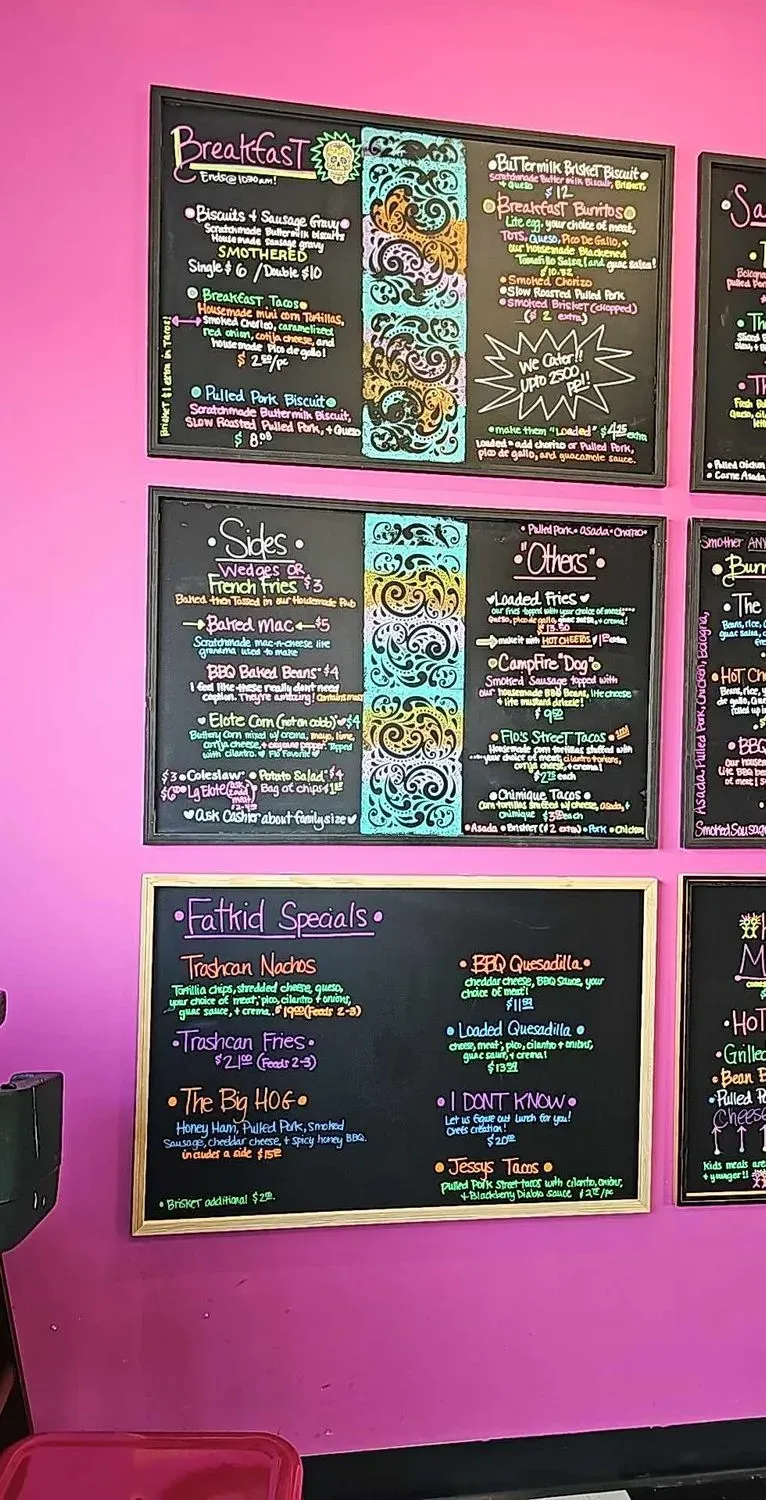 Breakfast
Ends@ 1030am!
Biscuits & Sausage Gravy
Scratchmade Buttermilk biscuits
Housemade sausage gravy
SMOTHERED
Single $ 6 / Double $10
Breakfast Tacos
Housemade mini corn Tortillas,
Smoked Chorizo, caramelized
red onion, cotija cheese, and
housemade Pico de gallo!
$ 2 50/pc
Brisket $1 extra in Tacos!
Pulled Pork Biscuit
Scratchmade Buttermilk Biscuit,
SLOW Roasted Pulled Pork, + Queso
$ 8.08
Buttermilk Brisket Biscuit
Scratchmade Butter milk Biscuit, Brisket,
+ Queso
$ 12
Breakfast Burritos
Lite egg, your choice of meat,
TOTS, Queso, Pico De Gallo, +
our housemade Blackened
Tomatillo Salsa! and guac salsa!
$10.32
Smoked Chorizo
SLOW Roasted Pulled Pork
Smoked Brisket (chopped)
($ 2 extra)
We Cater!!
Upto 2500
ppl!
make them "Loaded" $4.25 extra
Loaded = add chorizo or Pulled Pork,
pico de gallo, and guacamole sauce.
Sides
Wedges OR
French Fries $3
Baked then Tossed in our Housemade Rub
Baked Mac $5
Scratchmade mac-n-cheese like
grandma used to make
BBQ Baked Beans $4
I feel like these really dont need
caption. They're amazing! Contains meat
Elote Corn (not on cobb) $4
Buttery Corn mixed w/ crema, mayo, lime,
cotija cheese, + cayenne pepper. Topped
with cilantro. Flo Favorite
$3 Coleslaw Potato Salad $4
Lg Elote Bag of chips
ask Cashier about family size
Pulled Pork Asada Chorizo
"Others"
Loaded Fries
our fries topped with your choice of meat,
Queso, pico de gallo, guac salsa, + crema!
$13.50
make it with HOT CHEETOS extra
CampFire "Dog"
Smoked Sausage topped with
our housemade BBQ Beans, lite cheese
+ lite mustard drizzle!
$ 9 50
Flo's Street Tacos
Housemade corn tortillas stuffed with
your choice of meat, cilantro + onions,
cotija cheese, + crema!
$2.75 each
Chimique Tacos
Corn tortillas stuffed w/ cheese, asada, +
chimique each
Asada Brisket ($ 2 extra) Pork Chicken
Fatkid Specials
Trashcan Nachos
Tortillia chips, shredded cheese, queso,
your choice of meat, pico, cilantro + onions,
guac sauce, + crema. $19 00 (Feeds 2-3)
Trashcan Fries
$21 00 (Feeds 2-3)
The Big HOG
Honey Ham, Pulled Pork, Smoked
Sausage, cheddar cheese, + spicy honey BBQ.
includes a side
Brisket additional
BBQ Quesadilla
cheddar cheese, BBQ Sauce, your
choice of meat!
$11 99
Loaded Quesadilla
cheese, meat, pico, cilantro + onions,
guac sauce, + crema!
$13 99
I DONT KNOW
Let us figure out lunch for you!
Chefs creation!
$20 00
Jessys Tacos
Pulled Pork Street tacos with cilantro, onions,
+ Blackberry Diablo sauce
Pulled Chicken
Carne Asada
Smother ANY
The
Beans, rice,
Asada, Pulled Pork, Chicken, Bologna,
Smoked Sausage
BBQ
Grilled
Bean
Pulled
Cheese
Kids meals are
+ younger!!